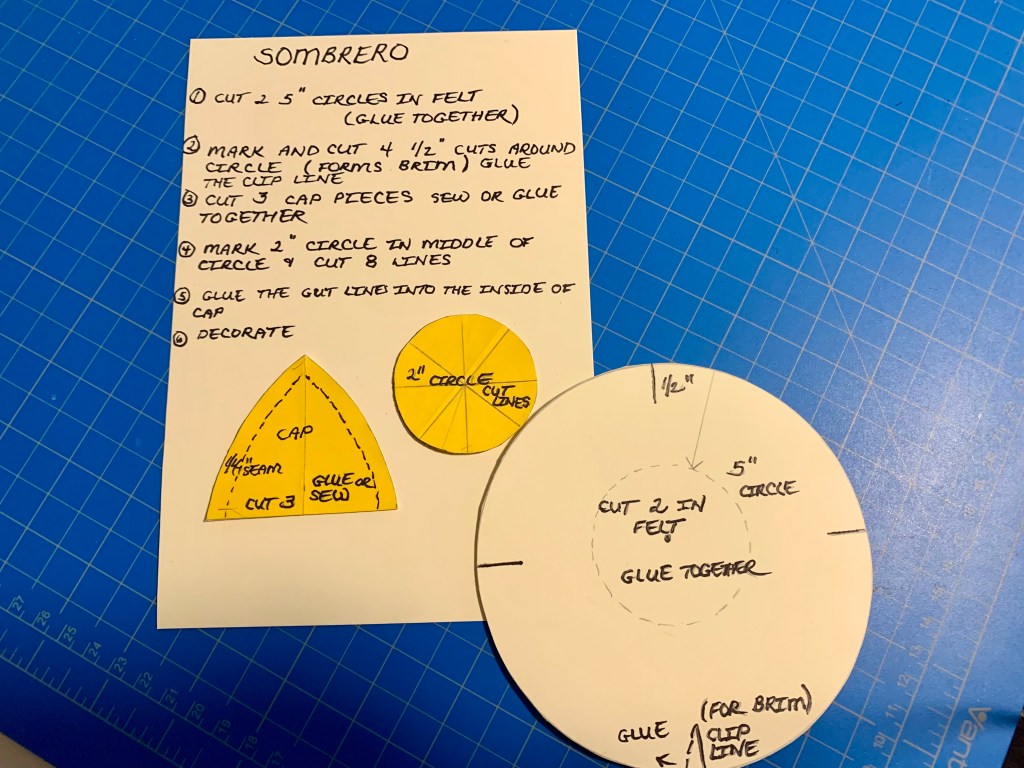 SOMBRERO
① CUT 2 5" CIRCLES IN FELT
(GLUE TOGETHER)
② MARK AND CUT 4 1/2" CUTS AROUND
CIRCLE (FORMS BRIM) GLUE
THE CLIP LINE
③ CUT 3 CAP PIECES SEW OR GLUE
TOGETHER
④ MARK 2" CIRCLE IN MIDDLE OF
CIRCLE & CUT 8 LINES
⑤ GLUE THE CUT LINES INTO THE INSIDE OF
CAP
⑥ DECORATE
CAP
1/4" SEAM
GLUE OR
SEW
CUT 3
2" CIRCLE
CUT
LINES
1/2"
5"
CIRCLE
CUT 2 IN
FELT
GLUE TOGETHER
(FOR BRIM)
GLUE
CLIP
LINE
27
26
25
24
23
22
21
20
19
18
17